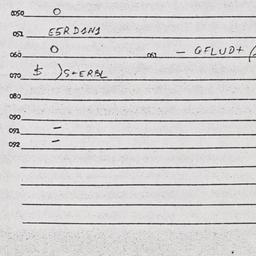 0050 0
051 E5RD1N1
060 0 061 - GFLUD+
070 $ )S+ERBL
080
090
091 -
092 -